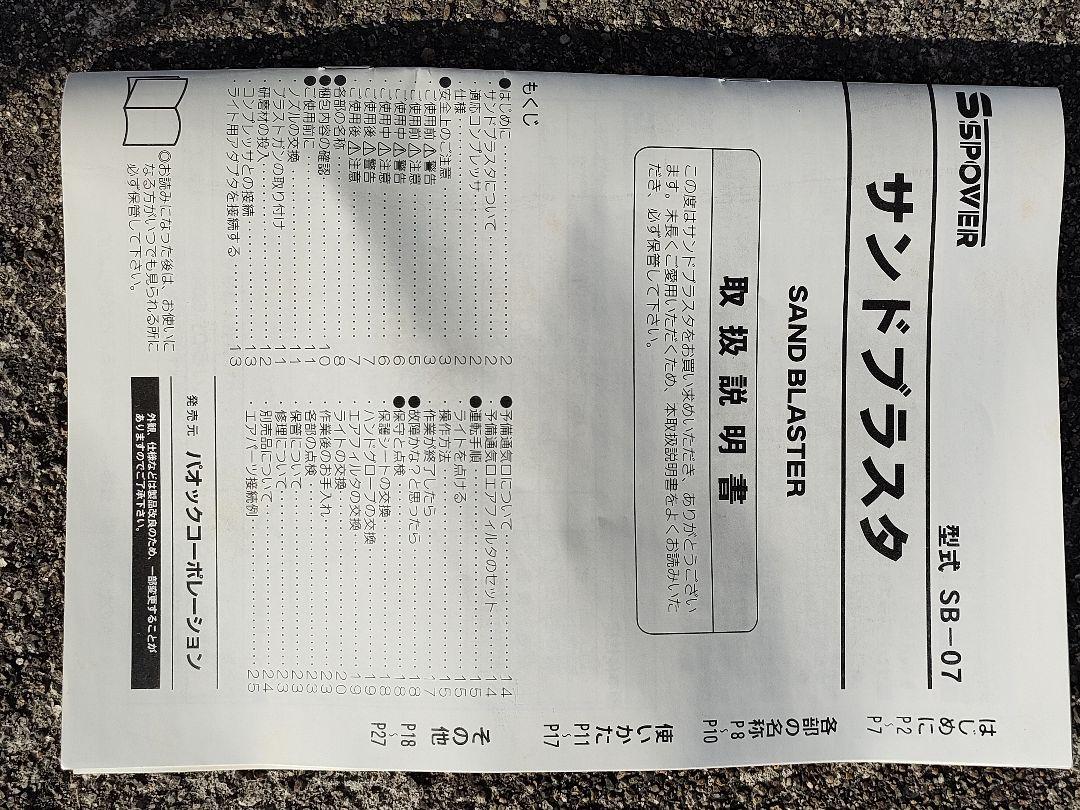 SSPOWER
型式 SB-07
サンドブラスタ
SAND BLASTER
取扱説明書
この度はサンドブラスタをお買い求めいただき、ありがとうござい
ます。末長くご愛用いただくため、本取扱説明書をよくお読みいた
だき、必ず保管して下さい。
もくじ
●はじめに 2
サンドブラスタについて 2
適応コンプレッサ 2
仕様 2
●安全上のご注意 3
ご使用前 ⚠警告 3
ご使用前 ⚠注意 5
ご使用中 ⚠警告 6
ご使用中 ⚠注意 6
ご使用後 ⚠警告 7
ご使用後 ⚠注意 7
●各部の名称 8
●梱包内容の確認 10
●ご使用前に 11
ノズルの交換 11
ブラストガンの取り付け 11
研磨材の投入 12
コンプレッサとの接続 13
ライト用アダプタを接続する 13
●予備通気口について 14
予備通気口エアフィルタのセット 14
●運転手順 15
ライトを点ける 15
操作方法 15
作業が終了したら 17
●故障かな?と思ったら 18
●保守と点検 18
保護シートの交換 18
ハンドグローブの交換 19
エアフィルタの交換 19
ライトの交換 20
作業後のお手入れ 23
各部の点検 23
保管について 23
修理について 23
別売品について 24
エアパーツ接続例 25
◎お読みになった後は、お使いに
なる方がいつでも見られる所に
必ず保管して下さい。
発売元 パオックコーポレーション
外観、仕様などは製品改良のため、一部変更することが
ありますのでご了承下さい。
はじめに
P2～P7
各部の名称
P8～P10
使いかた
P11～P17
その他
P18～P27